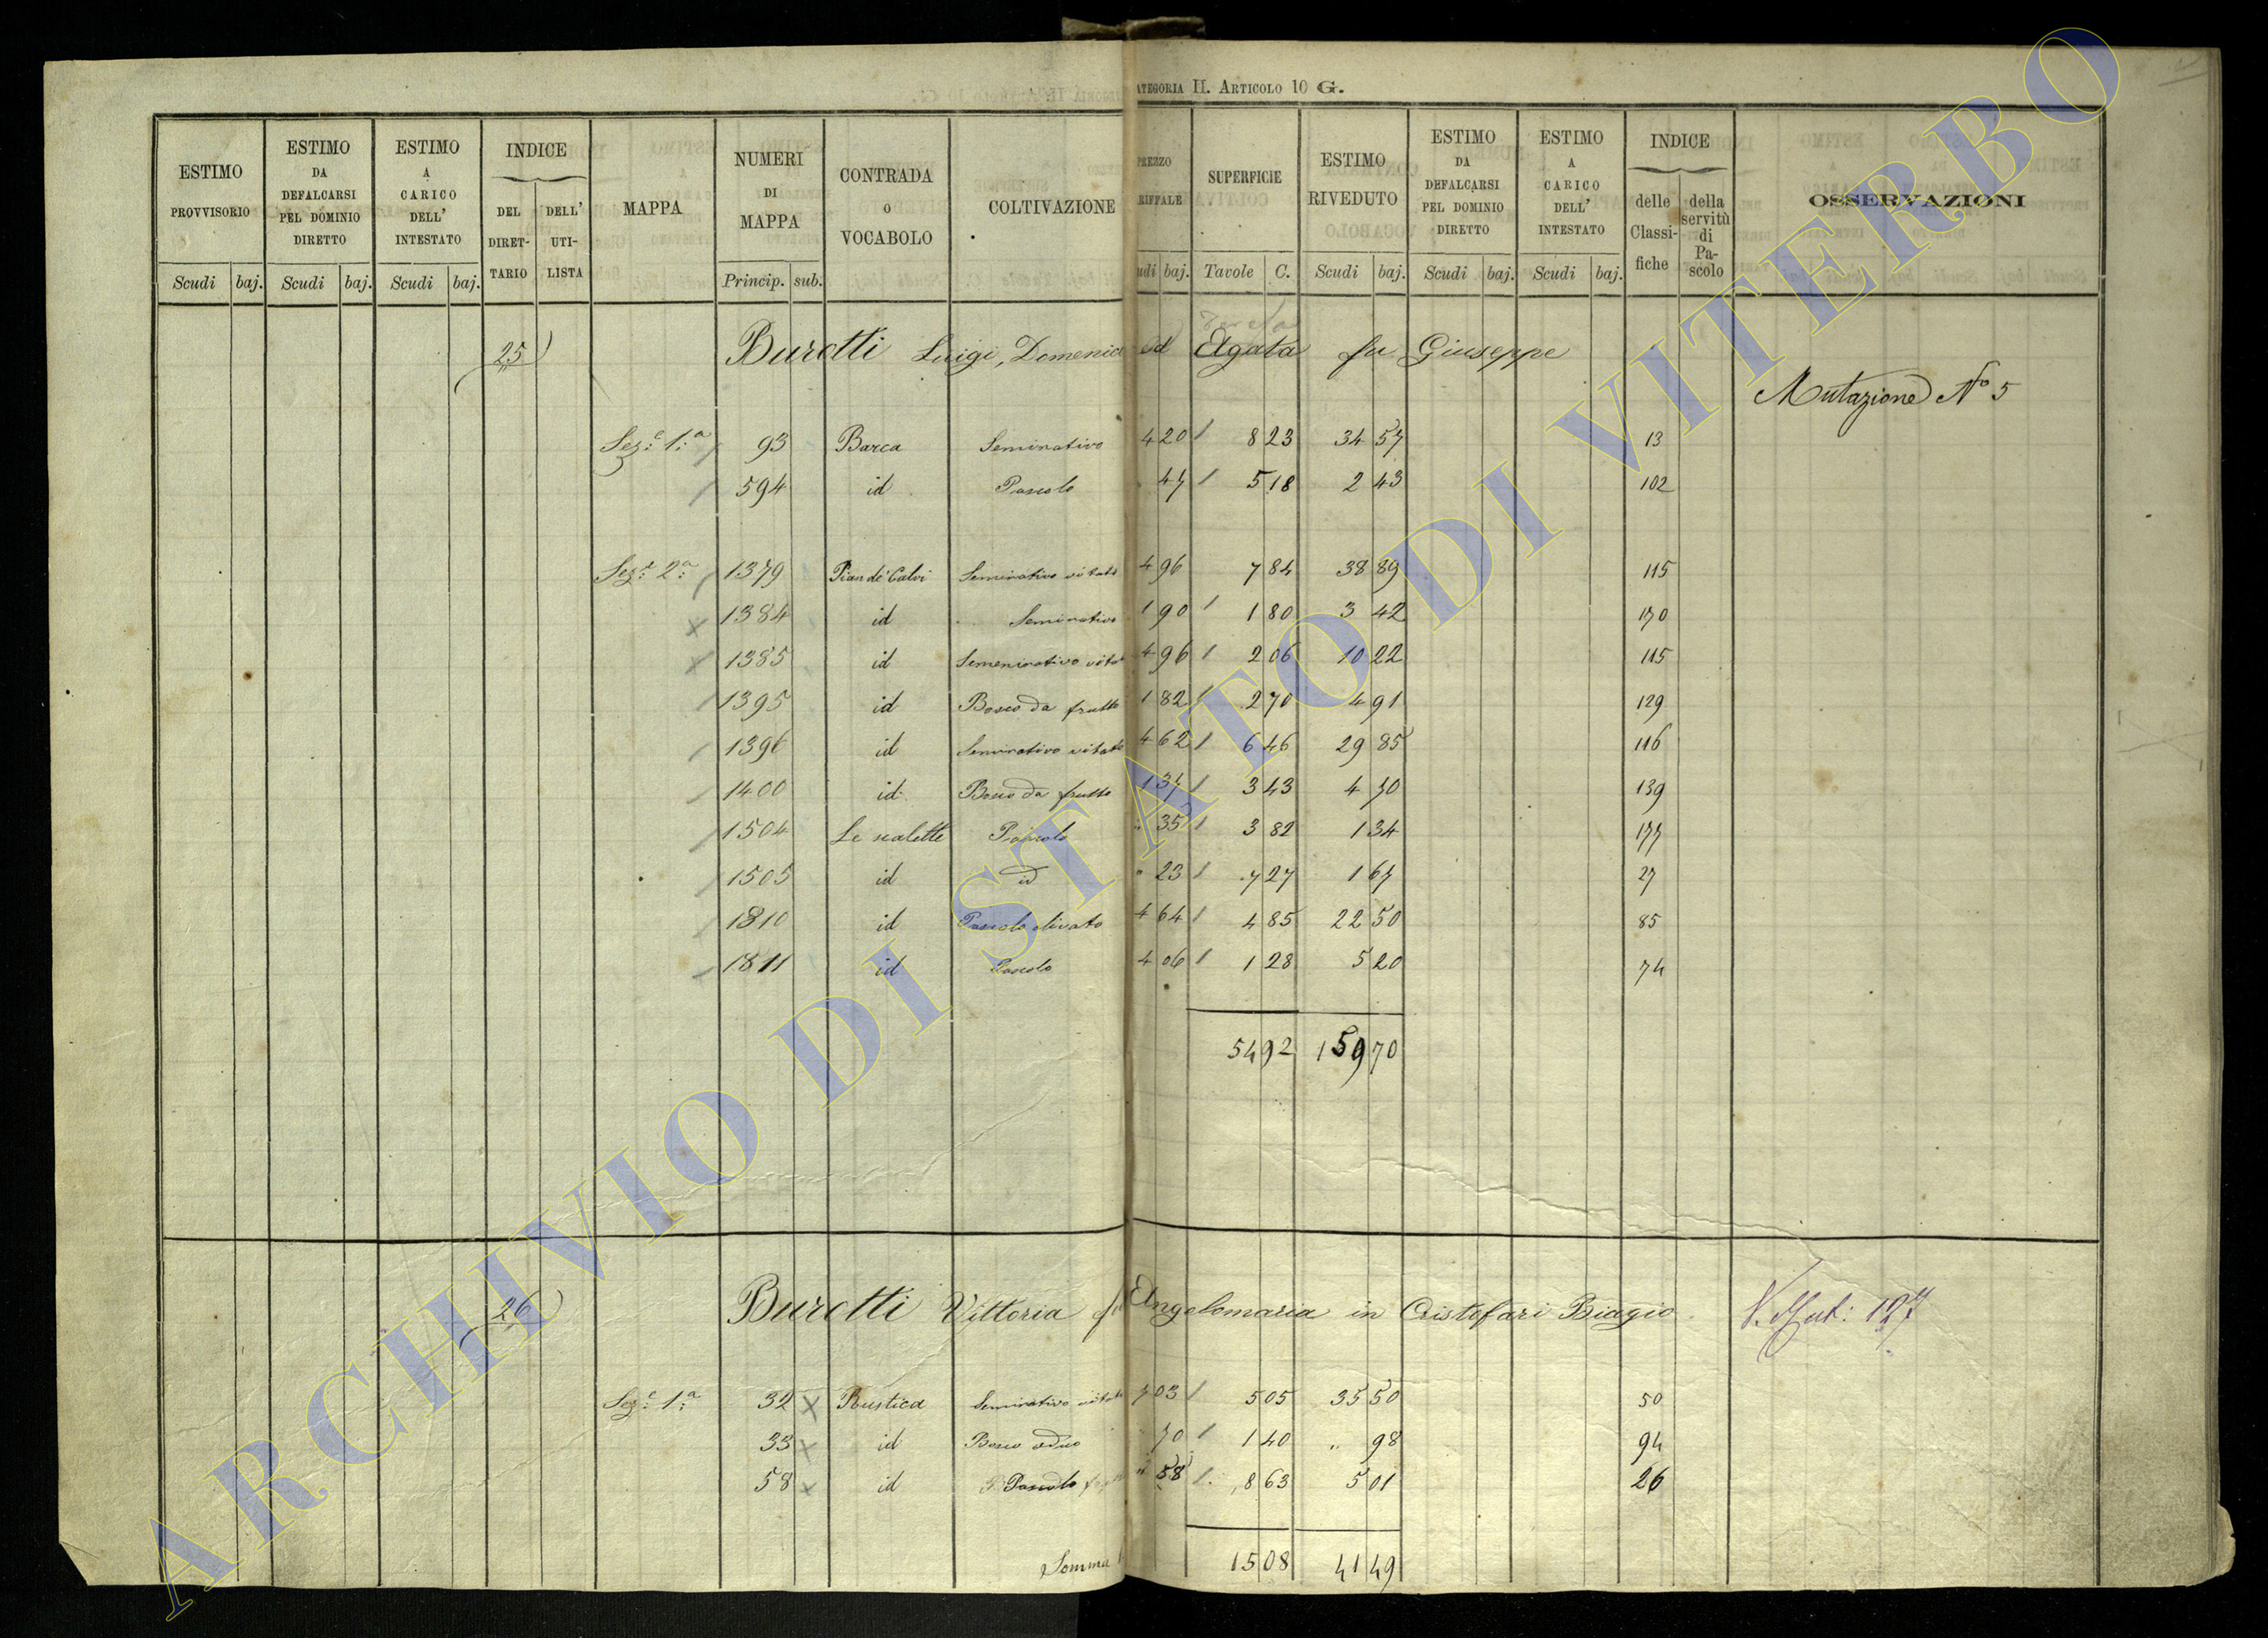 ATEGORIA II. ARTICOLO 10 G.
ESTIMO PROVVISORIO
ESTIMO DA DEFALCARSI PEL DOMINIO DIRETTO
ESTIMO A CARICO DELL' INTESTATO
INDICE
DEL DIRET-TARIO
DELL' UTI-LISTA
MAPPA
NUMERI DI MAPPA
CONTRADA O VOCABOLO
COLTIVAZIONE
PREZZO RIFFALE
SUPERFICIE
ESTIMO RIVEDUTO
ESTIMO DA DEFALCARSI PEL DOMINIO DIRETTO
ESTIMO A CARICO DELL' INTESTATO
INDICE
delle Classi-fiche
della servitù di Pa-scolo
OSSERVAZIONI
Scudi baj. Scudi baj. Scudi baj. Princip. sub. udi baj. Tavole C. Scudi baj. Scudi baj. Scudi baj.
25 Buratti Luigi, Domenica ed Agata fu Giuseppe
Mutazione No 5
Sez.e 1.a 93 Barca Seminativo 4 20 8 23 34 57 13
594 id Pascolo 47 5 18 2 43 102
Sez.e 2.a 1379 Pian de' Calvi Seminativo vitato 4 96 7 84 38 89 115
1384 id Seminativo 1 90 1 80 3 42 170
1385 id Semenirativo vitat 4 96 2 06 10 22 115
1395 id Bosco da frutto 1 82 2 70 4 91 129
1396 id Seminativo vitato 4 62 6 46 29 85 116
1400 id. Bosco da frutto 1 37 3 43 4 70 139
1504 Le scalette Pascolo " 35 3 82 1 34 177
1505 id id " 23 7 27 1 67 27
1810 id Pascolo olivato 4 64 4 85 22 50 85
1811 id Pascolo 4 06 1 28 5 20 74
54 92 159 70
26 Buratti Vittoria fu Angelomaria in Cristofari Biagio V. Mut: 127
Sez.e 1.a 32 Rustica Seminativo vitato 7 03 5 05 35 50 50
33 id Bosco ceduo 70 1 40 " 98 94
58 id Pascolo " 58 8 63 5 01 26
Somma 15 08 41 49
ARCHIVIO DI STATO DI VITERBO